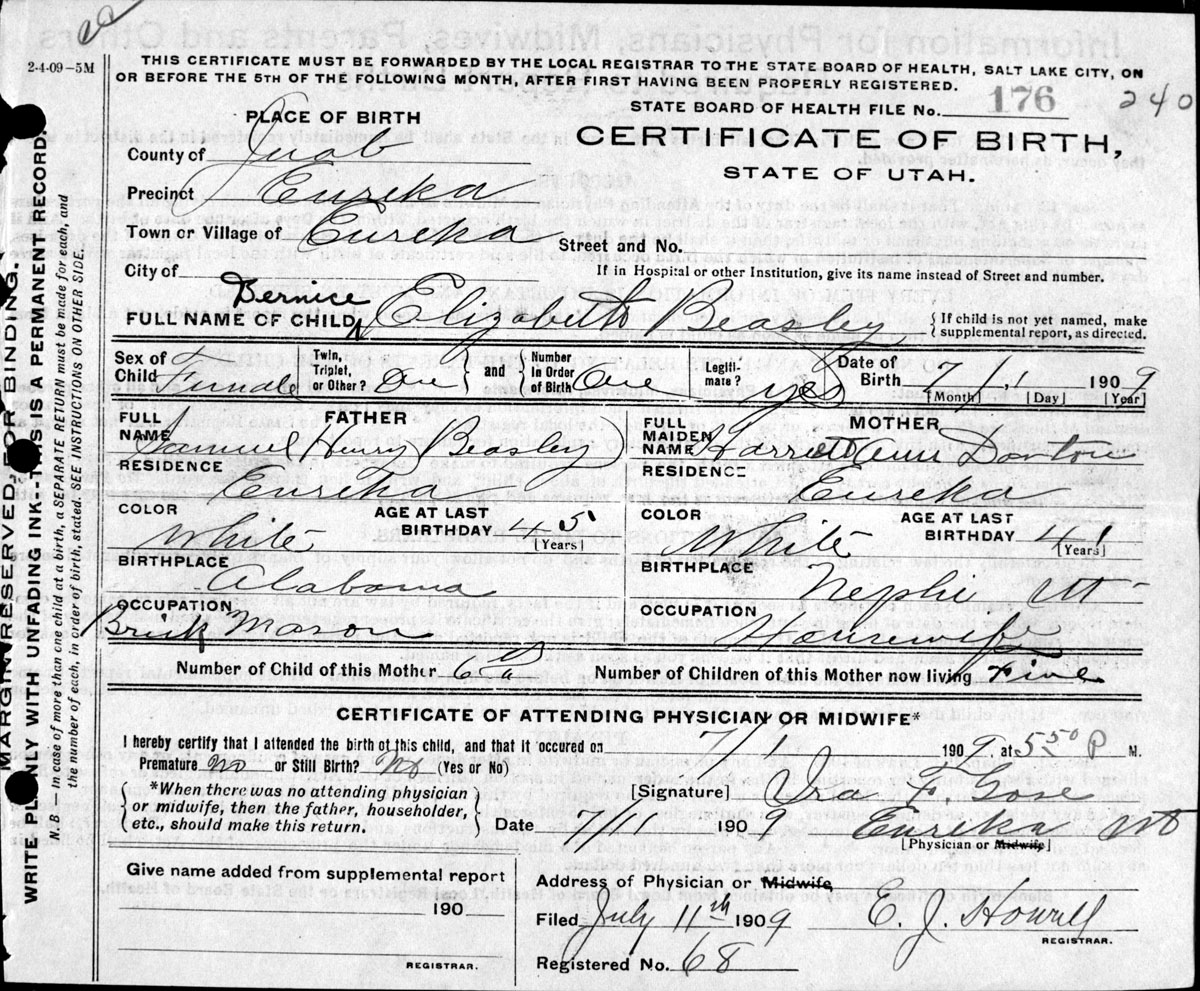 2-4-09-5M
THIS CERTIFICATE MUST BE FORWARDED BY THE LOCAL REGISTRAR TO THE STATE BOARD OF HEALTH, SALT LAKE CITY, ON
OR BEFORE THE 5TH OF THE FOLLOWING MONTH, AFTER FIRST HAVING BEEN PROPERLY REGISTERED.
STATE BOARD OF HEALTH FILE No. 176 240
PLACE OF BIRTH
CERTIFICATE OF BIRTH,
STATE OF UTAH.
County of Juab
Precinct Eureka
Town or Village of Eureka Street and No.
City of If in Hospital or other Institution, give its name instead of Street and number.
Bernice
FULL NAME OF CHILD Elizabeth Beasley { If child is not yet named, make supplemental report, as directed.
Sex of Child Female Twin, Triplet, or Other? One } and { Number In Order of Birth One Legitimate? yes Date of Birth 7 / 1 1909
[Month] [Day] [Year]
FATHER
FULL NAME Samuel Henry Beasley
RESIDENCE
Eureka
COLOR White AGE AT LAST BIRTHDAY 45
[Years]
BIRTHPLACE
Alabama
OCCUPATION
Brick Mason
MOTHER
FULL MAIDEN NAME Harriett Ann Dorton
RESIDENCE
Eureka
COLOR White AGE AT LAST BIRTHDAY 41
[Years]
BIRTHPLACE
Nephi Ut
OCCUPATION
Housewife
Number of Child of this Mother 6th Number of Children of this Mother now living Five
CERTIFICATE OF ATTENDING PHYSICIAN OR MIDWIFE*
I hereby certify that I attended the birth of this child, and that it occured on 7/1 1909, at 5 50 P M.
Premature No or Still Birth? No (Yes or No)
*When there was no attending physician
or midwife, then the father, householder,
etc., should make this return.
[Signature] Ora F. Gose
Date 7/11 1909 Eureka Ut
[Physician or Midwife]
Give name added from supplemental report
190
REGISTRAR.
Address of Physician or Midwife
Filed July 11th 1909 E. J. Howell
REGISTRAR.
Registered No. 68
MARGIN RESERVED FOR BINDING.
WRITE PLAINLY WITH UNFADING INK-THIS IS A PERMANENT RECORD.
N. B.—In case of more than one child at a birth, a SEPARATE RETURN must be made for each, and
the number of each, in order of birth, stated SEE INSTRUCTIONS ON OTHER SIDE.